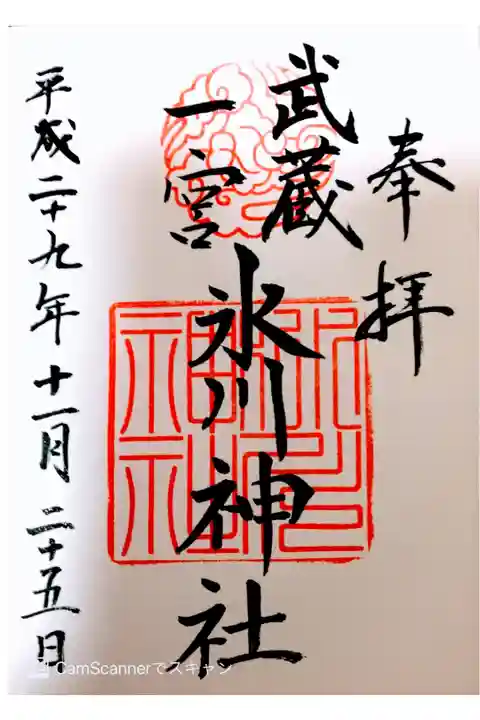 奉拝
武蔵
一宮
氷川神社
平成二十九年十一月二十五日
氷川神社
CamScannerでスキャン